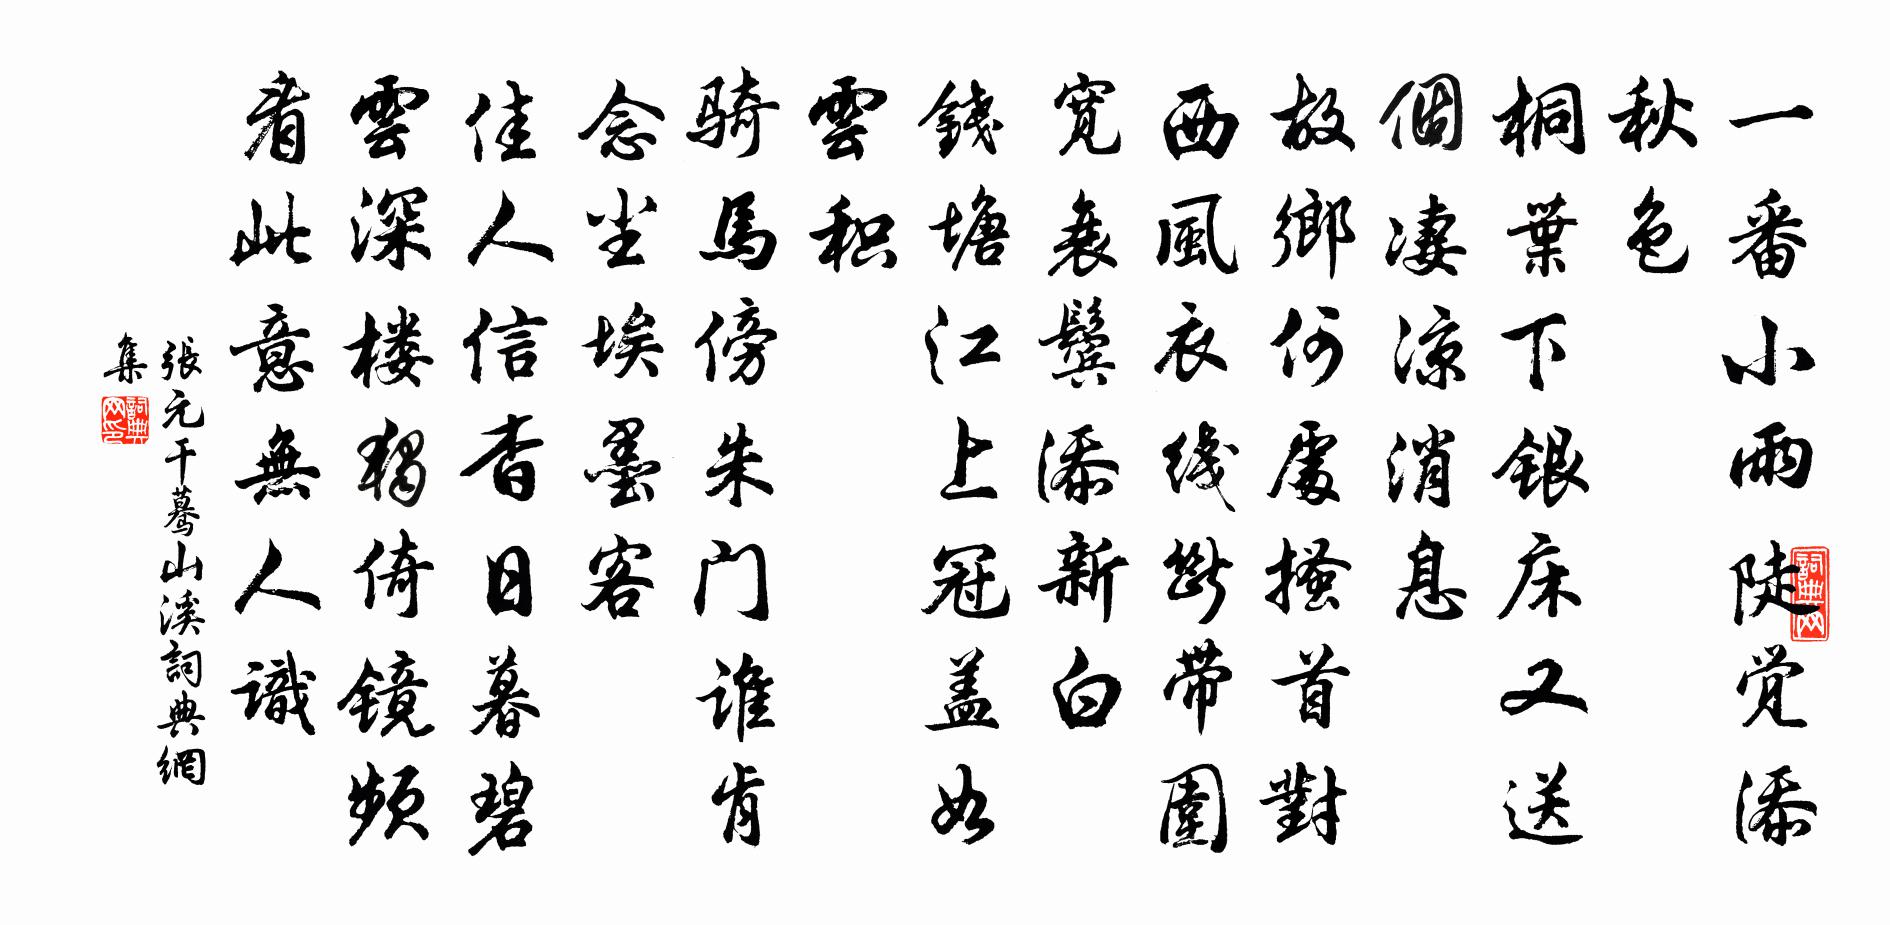 一番小雨陡觉添
秋色
桐葉下银床又送
個凄凉消息
故鄉何處搔首對
西風衣线斷带圍
宽衰鬓添新白
錢塘江上冠盖如
雲积
骑馬傍朱门谁肯
念尘埃墨客
佳人信杳日暮碧
雲深楼独倚镜频
看此意無人識
張元干驀山溪詞典網
集
詞典网
詞典网印